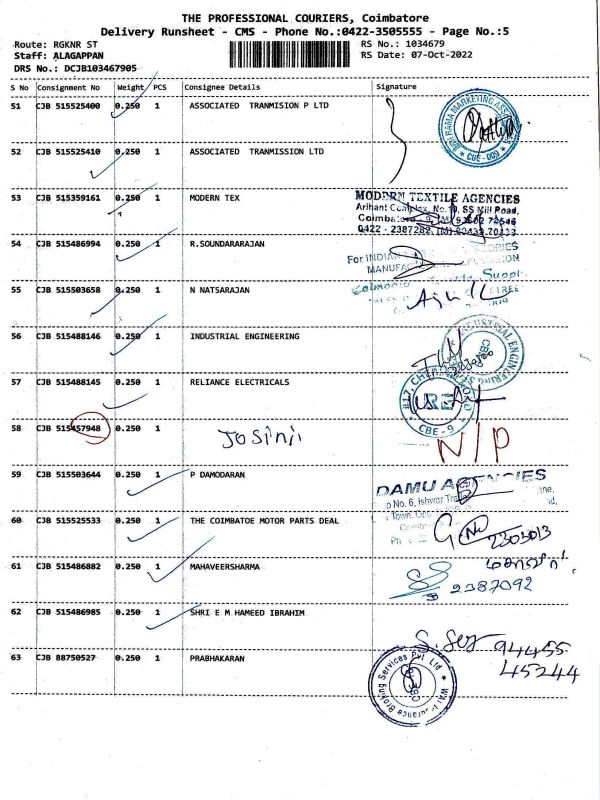 THE PROFESSIONAL COURIERS, Coimbatore
Delivery Runsheet - CMS - Phone No.:0422-3505555 - Page No.:5
Route: RGKNR ST RS No.: 1034679
Staff: ALAGAPPAN RS Date: 07-Oct-2022
DRS No.: DCJB103467905
S No Consignment No Weight PCS Consignee Details Signature
51 CJB 515525400 0.250 1 ASSOCIATED TRANMISION P LTD
CBE-009
52 CJB 515525410 0.250 1 ASSOCIATED TRANMISSION LTD
53 CJB 515359161 0.250 1 MODERN TEX
MODERN TEXTILE AGENCIES
Arihant Complex, No. 10, SS Mill Road,
0422 - 2387282,
54 CJB 515486994 0.250 1 R.SOUNDARARAJAN
For INDIAN
55 CJB 515503658 0.250 1 N NATSARAJAN
56 CJB 515488146 0.250 1 INDUSTRIAL ENGINEERING
INDUSTRIAL ENGINEERING
57 CJB 515488145 0.250 1 RELIANCE ELECTRICALS
RE
CBE - 9
58 CJB 515457948 0.250 1 Josinji N/P
59 CJB 515503644 0.250 1 P DAMODARAN
DAMU AGENCIES
No. 6, Ishwar
60 CJB 515525533 0.250 1 THE COIMBATOE MOTOR PARTS DEAL
2303013
61 CJB 515486882 0.250 1 MAHAVEERSHARMA
2387092
62 CJB 515486985 0.250 1 SHRI E M HAMEED IBRAHIM
94455
45244
63 CJB 88750527 0.250 1 PRABHAKARAN
Insurance Broking Services Pvt Ltd